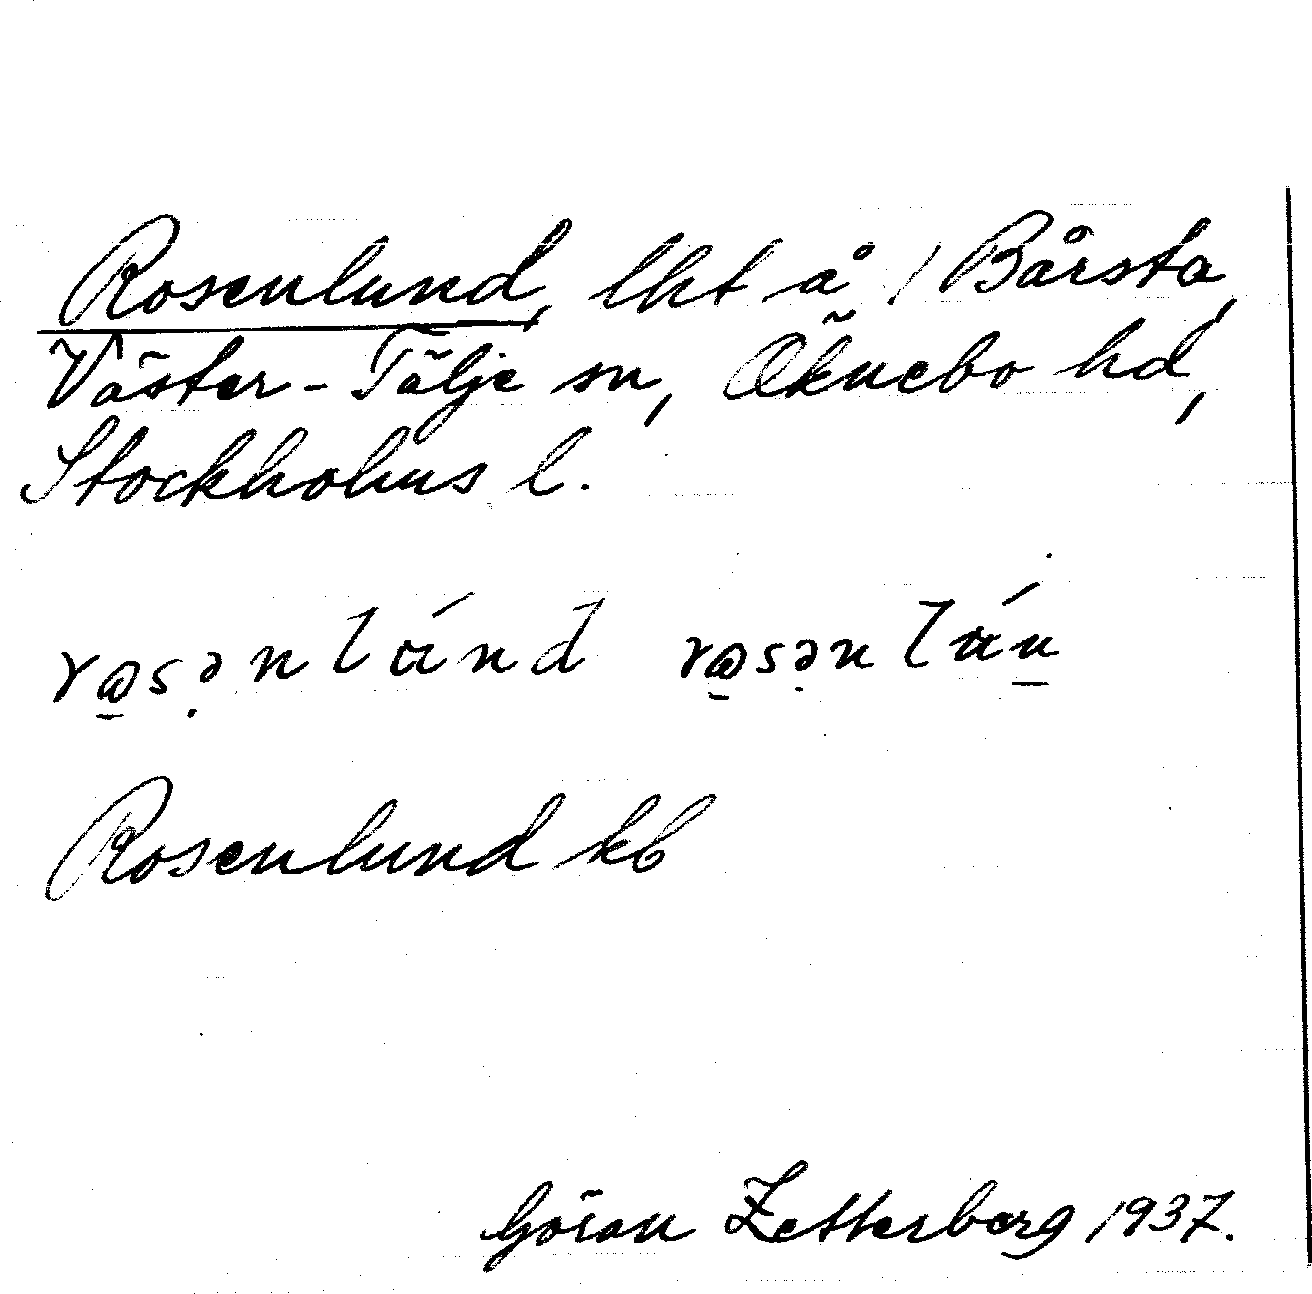 Rosenlund, lht å 1 Bårsta,
Väster-Tälje sn, Öknebo hd,
Stockholms l.
rosənlúnd rosənlún
Rosenlund kb
Göran Zetterberg 1937.